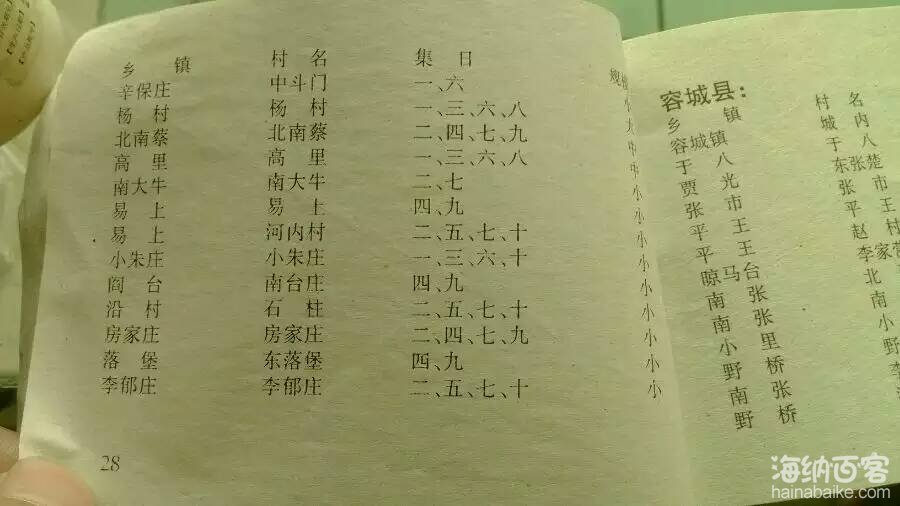 乡 镇 村 名 集 日
辛保庄 中斗门 一、六
杨 村 杨 村 一、三、六、八
北南蔡 北南蔡 二、四、七、九
高 里 高 里 一、三、六、八
南大牛 南大牛 二、七
易 上 易 上 四、九
易 上 河内村 二、五、七、十
小朱庄 小朱庄 一、三、六、十
阎 台 南台庄 四、九
沿 村 石 柱 二、五、七、十
房家庄 房家庄 二、四、七、九
落 堡 东落堡 四、九
李郁庄 李郁庄 二、五、七、十
28
规
小
小
小
小
小
小
小
小
容城县：
乡 镇 村 名
容城镇 城 内
于 八 于 八
贾 光 东张楚
张 市 张 市
平 王 平 王
平 王 赵 村
晾马台 李家营
南 张 北
南 张 南
小 里 小
野 桥 野
南 张
野 桥
海纳百客
hainabaike.com